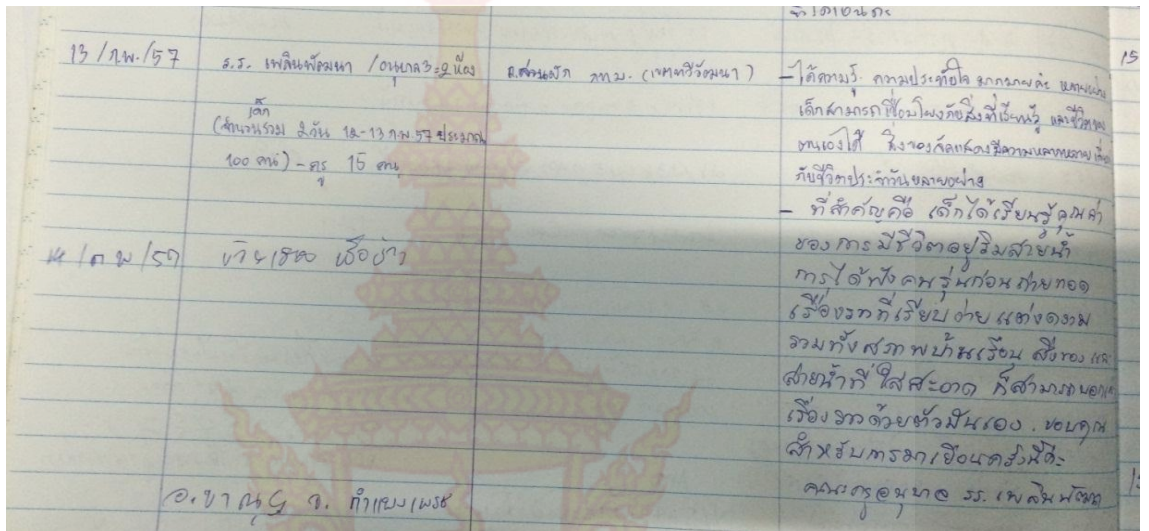 13 /ก.พ./57
ร.ร. เพลินพัฒนา /อนุบาล3=2ห้อง
(จำนวนรวม เด็ก 2วัน 12-13 ก.พ.57 ประมาณ
100 คน) - ครู 15 คน
กทม. (เขตทวีวัฒนา)
- ได้ความรู้ ความประทับใจ มากมายค่ะ หลายอย่าง
เด็กสามารถเชื่อมโยงกับสิ่งที่เรียนรู้ และชีวิตของ
ตนเองได้ สิ่งของจัดแสดงมีความหลากหลาย
กับชีวิตประจำวันหลายอย่าง
- ที่สำคัญคือ เด็กได้เรียนรู้คุณค่า
ของการมีชีวิตอยู่ริมสายน้ำ
การได้ฟังคนรุ่นก่อนถ่ายทอด
เรื่องราวที่เรียบง่าย แต่งดงาม
รวมทั้งสภาพบ้านเรือน สิ่งของ และ
สายน้ำที่ใสสะอาด ก็สามารถบอก
เรื่องราวด้วยตัวมันเอง. ขอบคุณ
สำหรับการมาเยือนครั้งนี้ค่ะ
คณะครูอนุบาล รร. เพลินพัฒนา
14 /ก.พ/57
อ.ขาณุฯ จ. กำแพงเพชร
15